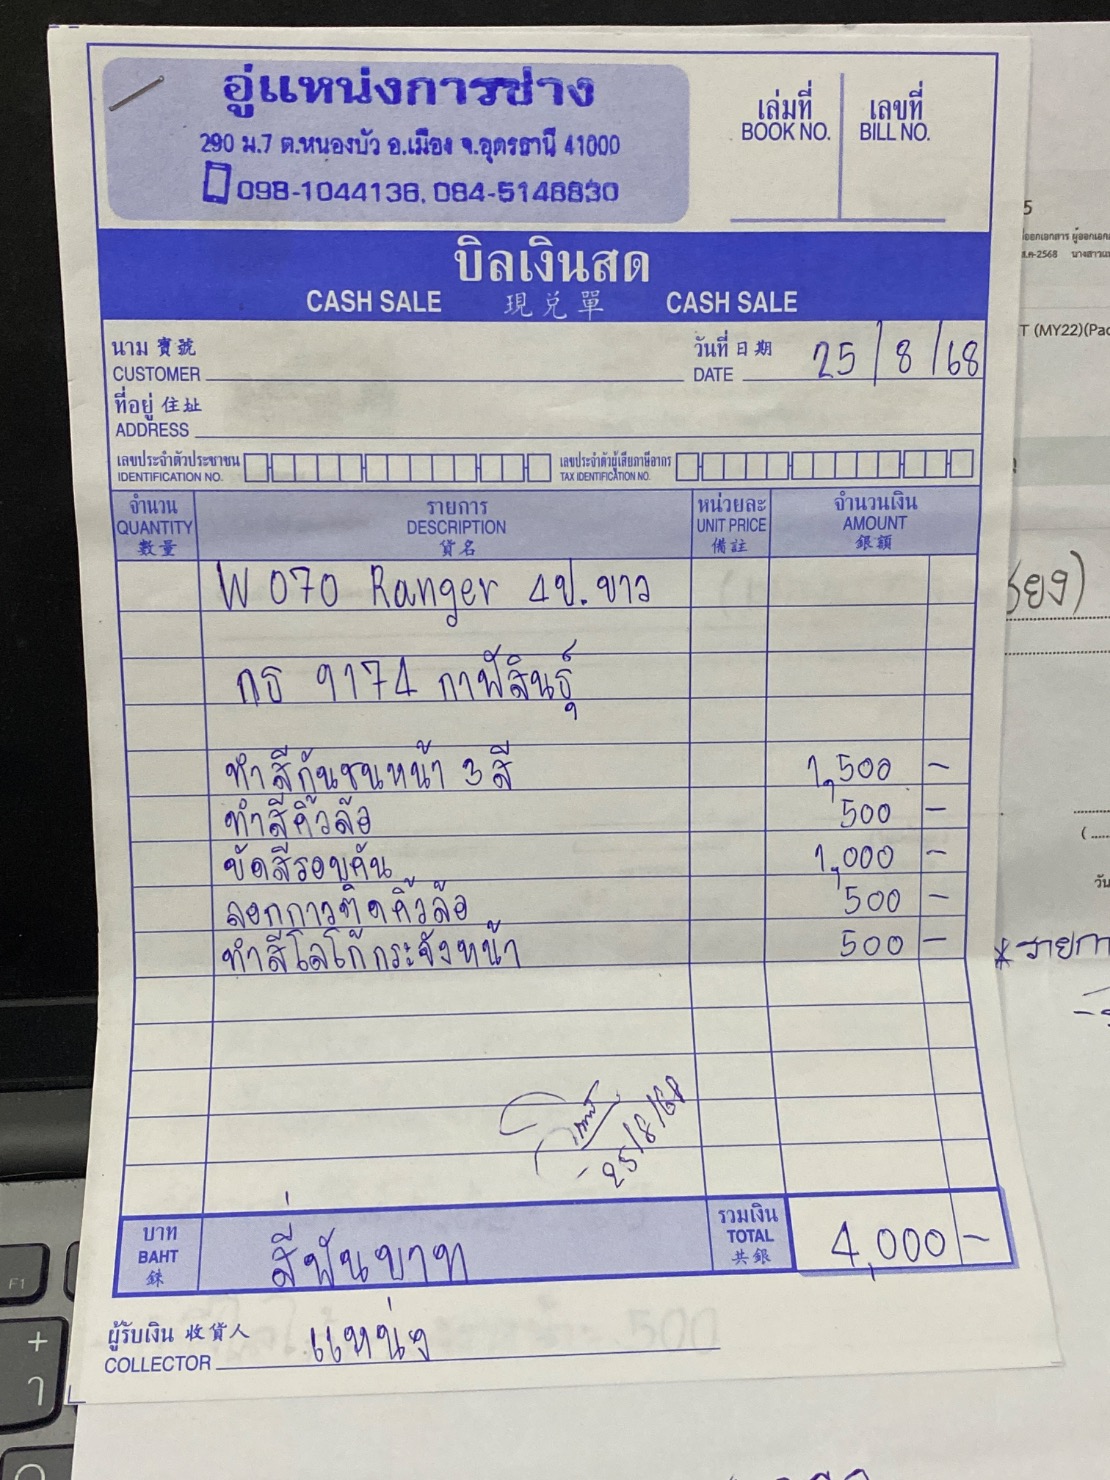 อู่แหน่งการช่าง
290 ม.7 ต.หนองบัว อ.เมือง จ.อุดรธานี 41000
098-1044136, 084-5148830
เล่มที่ เลขที่
BOOK NO. BILL NO.
บิลเงินสด
CASH SALE 現兑單 CASH SALE
นาม 寶號
CUSTOMER
วันที่ 日期
DATE 25/8/68
ที่อยู่ 住址
ADDRESS
เลขประจำตัวประชาชน
IDENTIFICATION NO.
เลขประจำตัวผู้เสียภาษีอากร
TAX IDENTIFICATION NO.
จำนวน รายการ หน่วยละ จำนวนเงิน
QUANTITY DESCRIPTION UNIT PRICE AMOUNT
數量 貨名 備註 銀額
W 070 Ranger 4ป. ขาว
กธ 9174 กาฬสินธุ์
ทำสีกันชนหน้า 3 สี 1,500 -
ทำสีคิ้วล้อ 500 -
ขัดสีรอบคัน 1,000 -
ลอกกาวติดคิ้วล้อ 500 -
ทำสีโลโก้กระจังหน้า 500 -
25/8/68
บาท
BAHT
銖
สี่พันบาท
รวมเงิน
TOTAL
共銀
4,000 -
ผู้รับเงิน 收貨人
COLLECTOR แหน่ง
5
ส.ค-2568
T (MY22)(Pac
F1
+